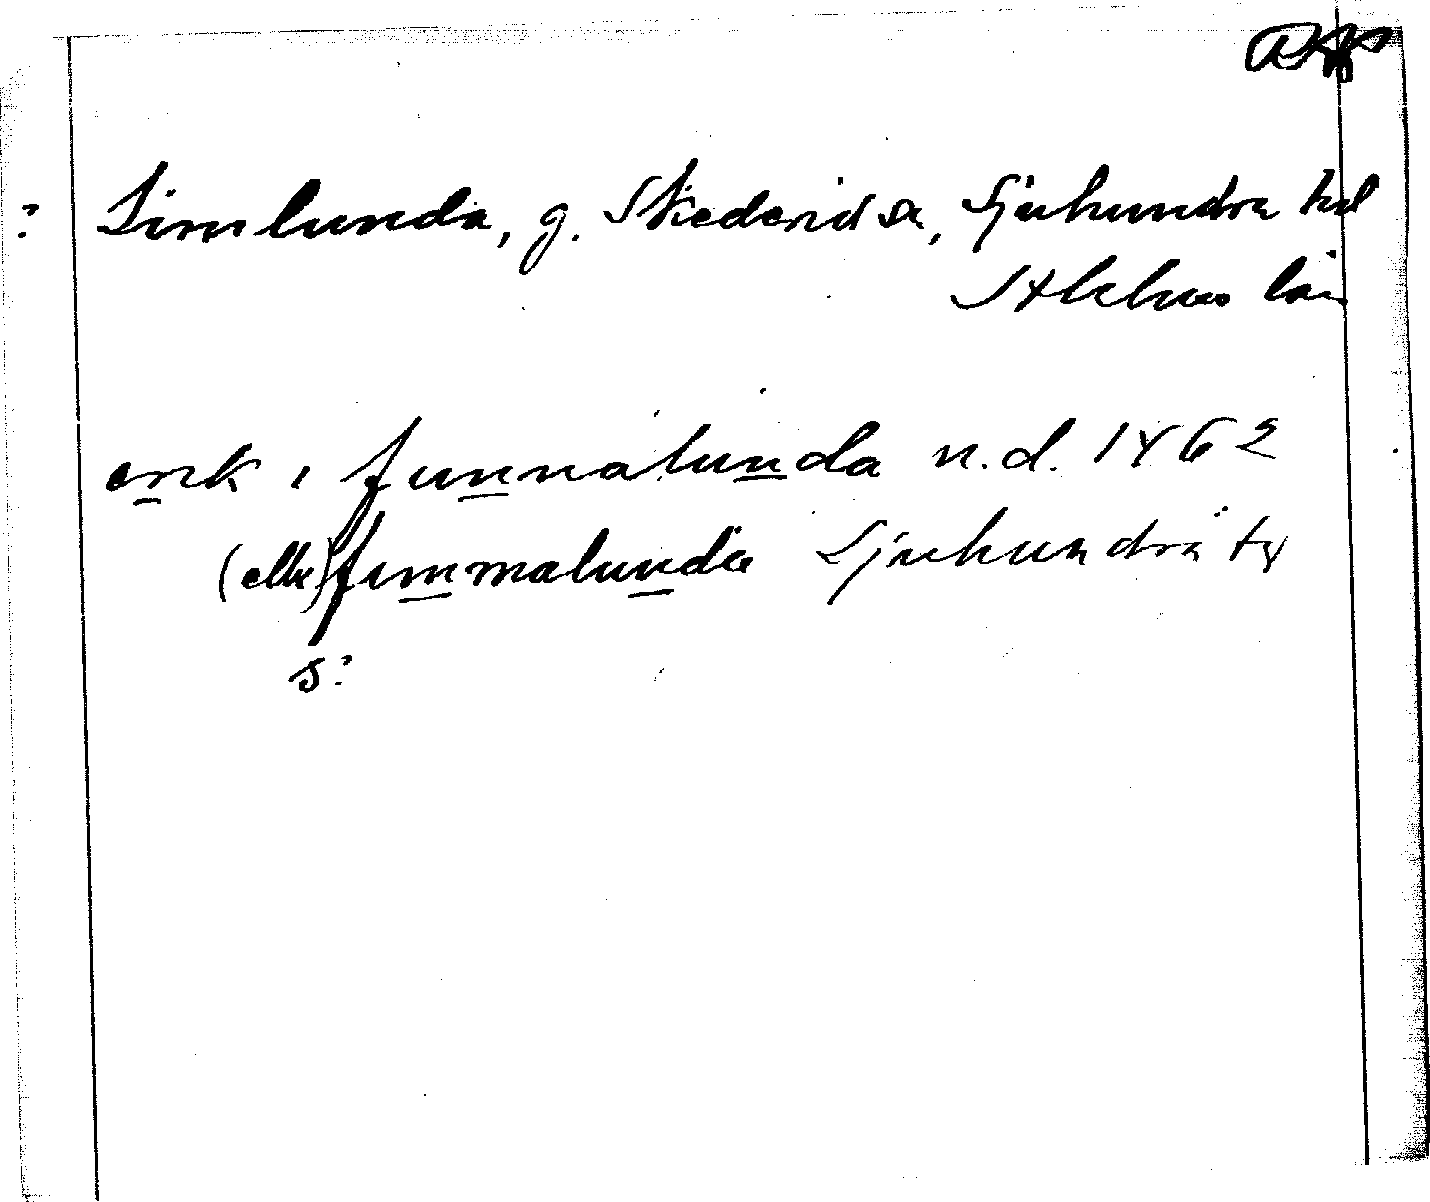 ? Simlunda, g. Skederids sn, Sjuhundra hd
Sthlms län
erik i funnalunda n.d. 1462
(elle) fimmalunda Sjuhundra tg
s?